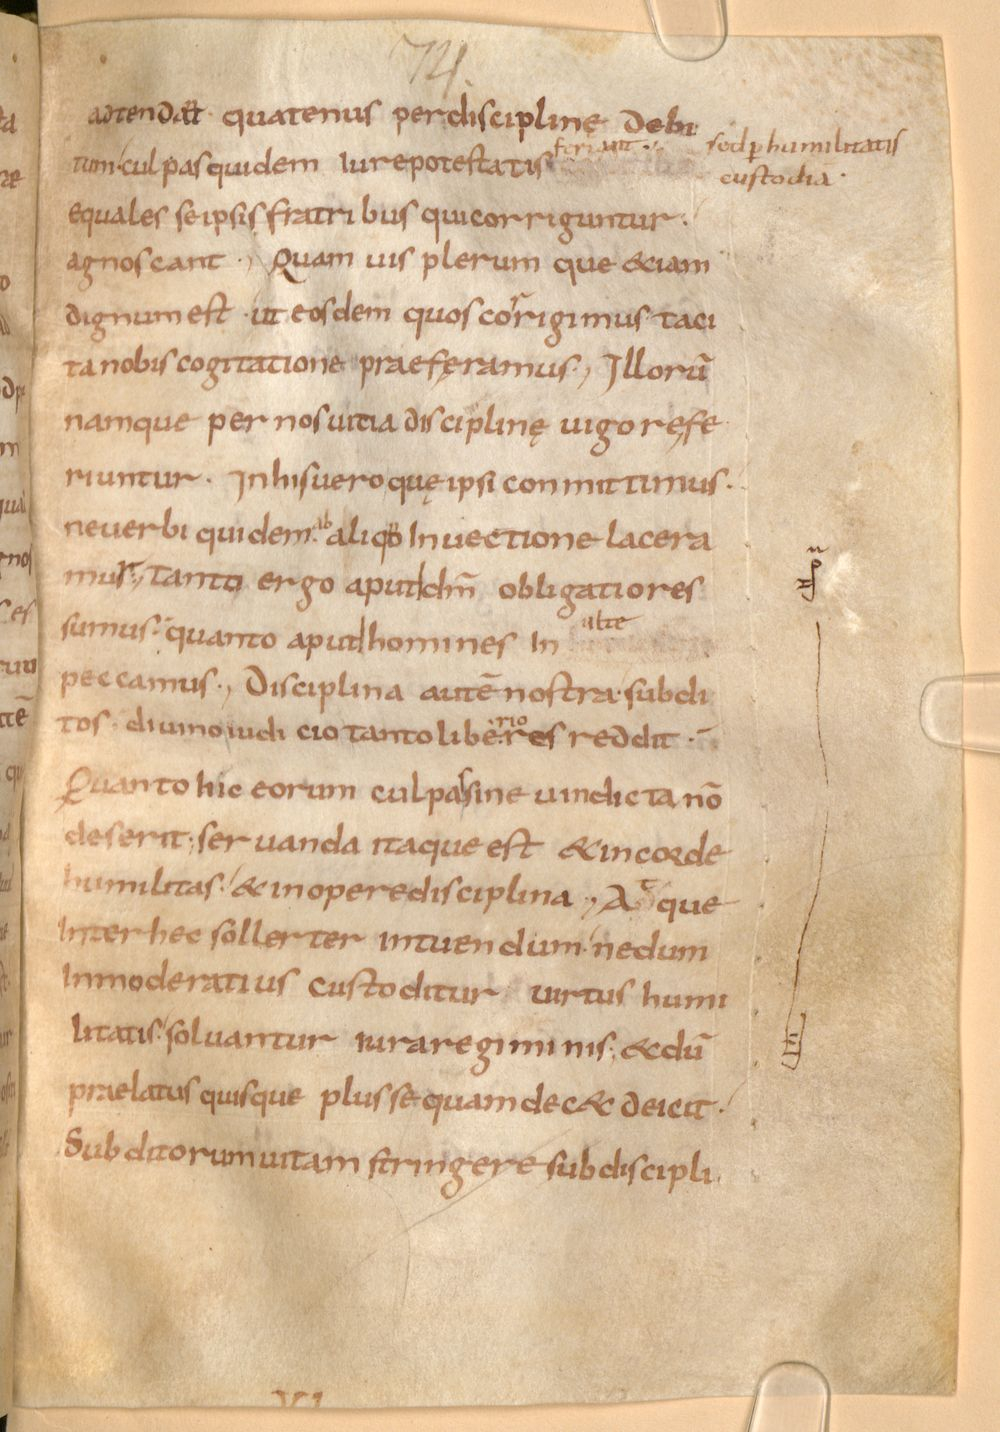 74.
adtendat quatenus per disciplinę debi
tum · culpas quidem iure potestatis feriant · sed ꝑ humilitatis
custodiā ·
equales se ipsis fratribus qui corriguntur ·
agnoscant · Quam uis plerum que &iam
dignum est · ut eosdem quos corrigimus taci
ta nobis cogitatione praeferamus · Illorū
namque per nos uitia disciplinę uigore fe
riuntur · In his uero quę ipsi conmittimus ·
ne uerbi quidem ab aliquo Inuectione lacera
mur · tanto ergo aput dm̄ obligatiores
sumus · quanto aput homines In ulte
peccamus · Disciplina autē nostra · subdi
tos · diuino iudicio tanto liberiores reddit ·
Quanto hic eorum culpas sine uindicta nō
deserit · seruanda itaque est & in corde
humilitas · & in opere disciplina · Atque
Inter hec sollerter intuendum · ne dum
Inmoderatius custoditur uirtus humi
litatis · soluantur iura regiminis · & dū
praelatus quisque plus se quam dec& deicit ·
Subditorum uitam stringere sub discipli
XI